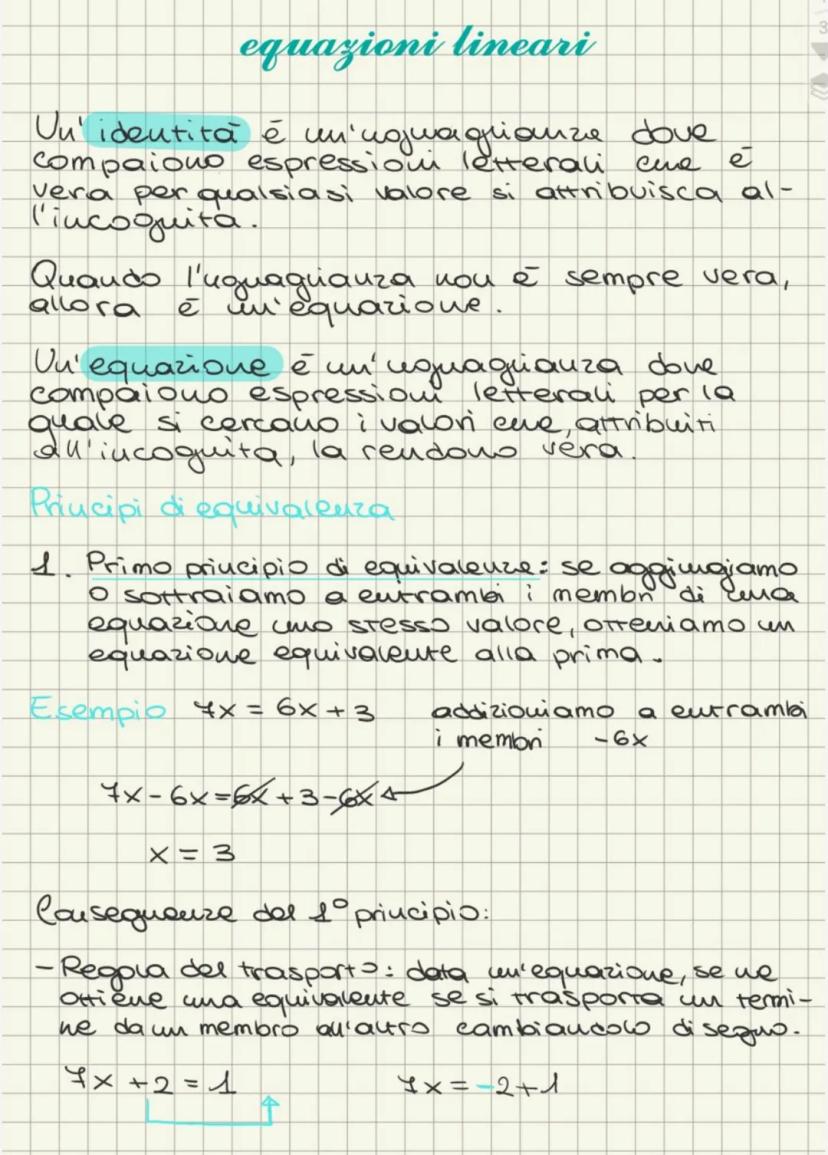 equazioni lineari
Un'identità è un'uguaglianza dove
compaiono espressioni letterali che è
vera per qualsiasi valore si attribuisca al-
l'incognita.
Quando l'uguaglianza non è sempre vera,
allora è un'equazione.
Un'equazione è un'uguaglianza dove
compaiono espressioni letterali per la
quale si cercano i valori che, attribuiti
all'incognita, la rendono vera.
Principi di equivalenza
1. Primo principio di equivalenza: se aggiungiamo
o sottraiamo a entrambi i membri di una
equazione uno stesso valore, otteniamo un
equazione equivalente alla prima.
Esempio 7x = 6x + 3 addizioniamo a entrambi
i membri -6x
7x - 6x = 6x + 3 - 6x
x = 3
Conseguenze del 1° principio:
- Regola del trasporto: data un'equazione, se ne
ottiene una equivalente se si trasporta un termi-
ne da un membro all'altro cambiandolo di segno.
7x + 2 = 1 7x = -2 + 1